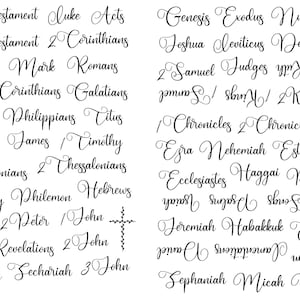 stament Luke Acts
stament 2 Corinthians
Mark Romans
Corinthians Galatians
Philippians Titus
James 1 Timothy
2 Thessalonians
nians
y Philemon Hebrews
2 Peter 1 John
Revelations 2 John
Zechariah 3 John
Genesis Exodus N
Joshua Leviticus De
2 Samuel Judges
1 Samuel 1 Kings 2
1 Chronicles 2 Chronic
Ezra Nehemiah Est
Ecclesiastes Haggai
Jeremiah Habakkuk
Daniel Lamentations
Zephaniah Micah